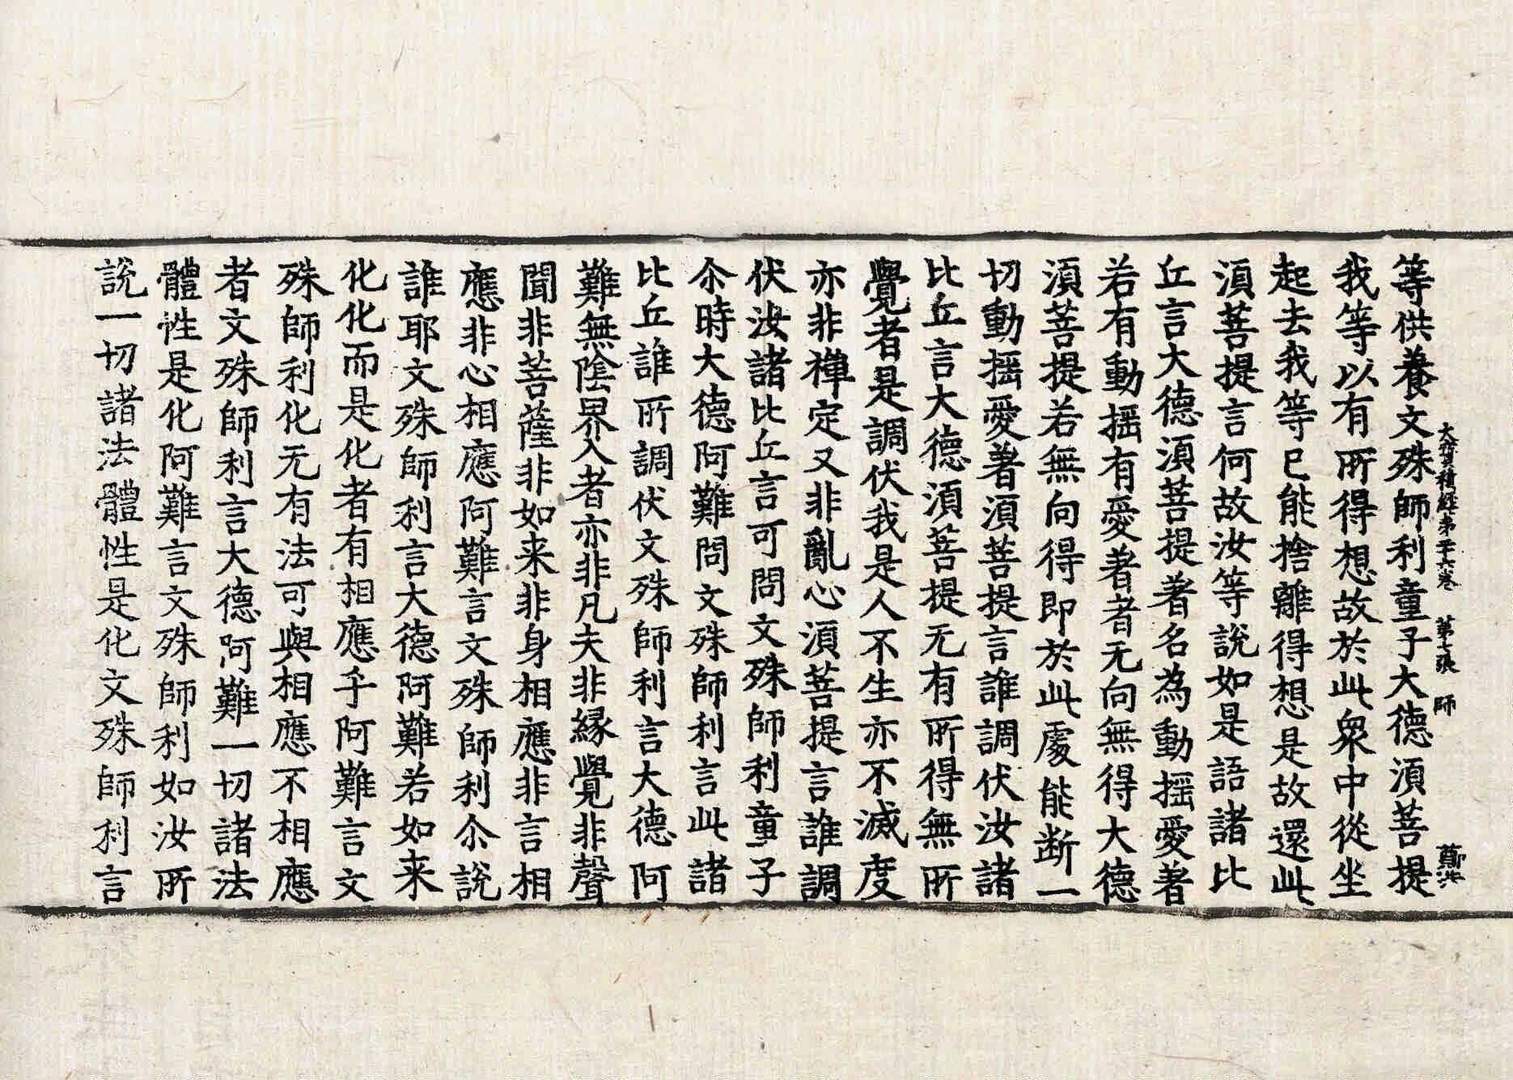 大寶積經第二十六卷　第七張　師
等供養文殊師利童子大德湏菩提
我等以有所得想故於此衆中從坐
起去我等已能捨離得想是故還此
湏菩提言何故汝等說如是語諸比
丘言大德湏菩提著名為動摇愛著
若有動摇有愛著者无向無得大德
湏菩提若無向得即於此處能断一
切動摇愛著湏菩提言誰調伏汝諸
比丘言大德湏菩提无有所得無所
覺者是調伏我是人不生亦不滅度
亦非禪定又非亂心湏菩提言誰調
伏汝諸比丘言可問文殊師利童子
尒時大德阿難問文殊師利言此諸
比丘誰所調伏文殊師利言大德阿
難無陰界入者亦非凡夫非緣覺非聲
聞非菩薩非如来非身相應非言相
應非心相應阿難言文殊師利尒說
誰耶文殊師利言大德阿難若如来
化化而是化者有相應乎阿難言文
殊師利化无有法可與相應不相應
者文殊師利言大德阿難一切諸法
體性是化阿難言文殊師利如汝所
說一切諸法體性是化文殊師利言